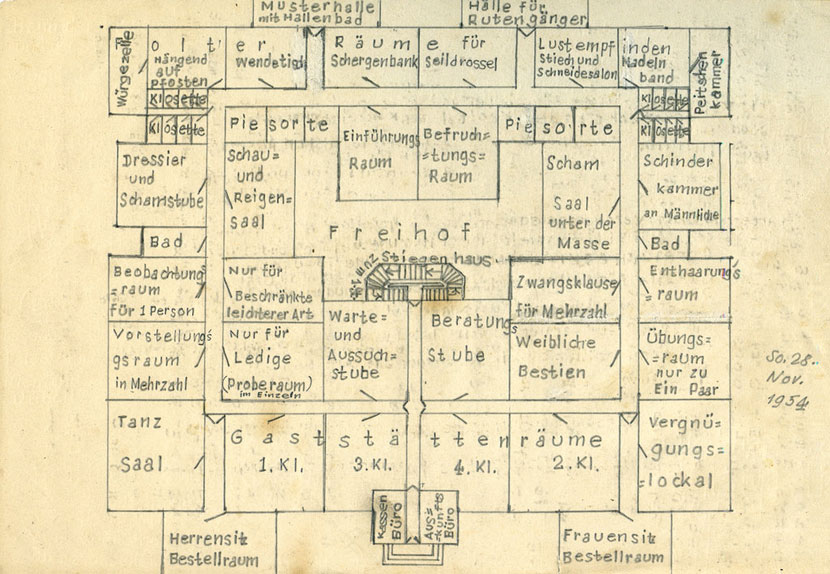 Musterhalle
mit Hallenbad
Halle für
Rutengänger
Würgezelle
olter Räume für Lustempfinden
Hängend
auf
Pfosten
Wendetisch
Schergenbank
Seildrossel
Stiech und
Schneidesalon
Nadeln
band
Peitschen
kammer
Klosette
Klosette
Klosette
Klosette
Piesorte
Einführungs
Raum
Befruch=
=tungs=
Raum
Piesorte
Dressier
und
Schamstube
Schau=
und
Reigen=
saal
Scham
Saal
unter der
Masse
Schinder
kammer
an Männliche
Freihof
zum 1.St.
Stiegenhaus
Bad
Bad
Beobachtungs
=raum
für 1 Person
Nur für
Beschränkte
leichterer Art
Zwangsklause
für Mehrzahl
Enthaarung's
=raum
Vorstellung's
gsraum
in Mehrzahl
Nur für
Ledige
(Proberaum)
im Einzeln
Warte=
und
Aussuch=
stube
Beratung's
Stube
Weibliche
Bestien
Übungs=
=raum
nur zu
Ein Paar
So. 28.
Nov.
1954
Tanz
Saal
Gaststättenräume
1. Kl.
3. Kl.
4. Kl.
2. Kl.
Vergnü=
gungs=
=lockal
Kassen
Büro
Aus=
=kunfts
Büro
Herrensitz
Bestellraum
Frauensitz
Bestellraum